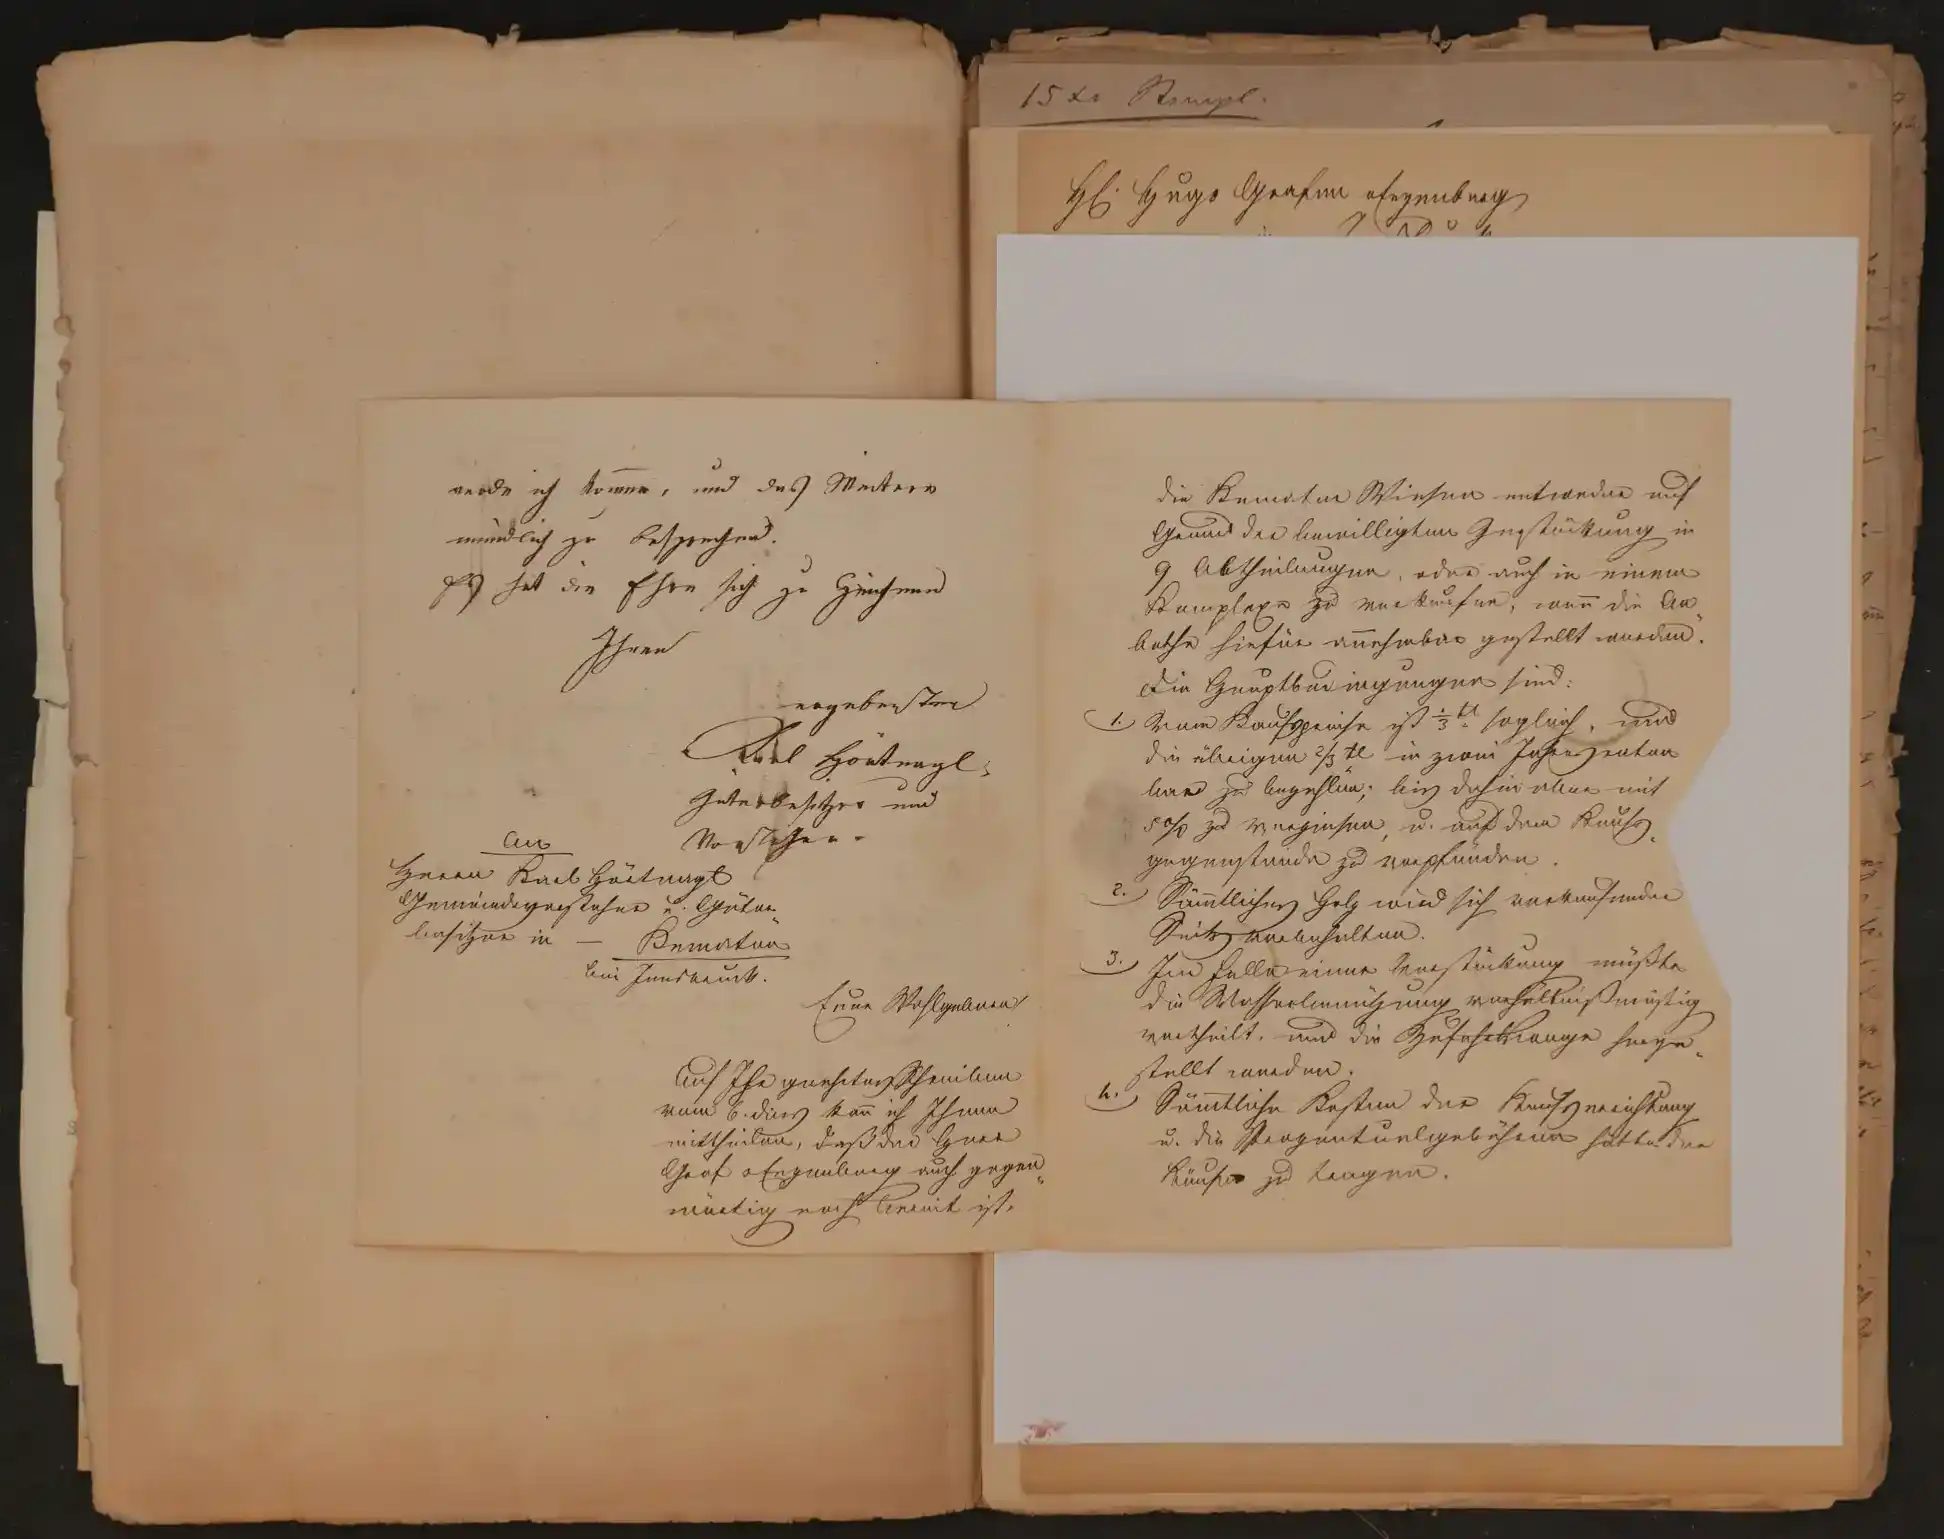 15 xr Stempel.
H. Hugo Grafen v Enzenberg
werde ich kommen, und das Weitere
mündlich zu besprechen.
Es hat die Ehre sich zu zeichnen
Ihren
ergebensten
Karl Hörtnagl
Güterbesitzer und
Vorsteher.
An
Herrn Karl Hörtnagl
Gemeindevorsteher u. Güter-
besitzer in — Kematen
bei Innsbruck.
Euer Wohlgeboren
Auf Ihr geehrtes Schreiben
vom 6. dies kann ich Ihnen
mittheilen, daß der Herr
Graf v Enzenberg auch gegen-
wärtig noch bereit ist,
die Kemater Wiesen entweder auf
Grund der bewilligten Zerstückung in
9 Abtheilungen, oder auch in einem
Komplexe zu verkaufen, wenn die An-
bothe hiefür annehmbar gestellt werden.
Die Hauptbedingungen sind:
1. Vom Kaufspreise ist 1/3 tl sogleich, und
die übrigen 2/3 tl in zwei Jahresraten
baar zu bezahlen; bis dahin aber mit
5 % zu verzinsen, u. auf dem Kaufs-
gegenstande zu verpfänden.
2. Sämmtliches Holz wird sich verkaufender
Seits vorbehalten.
3. Im Falle einer Zerstückung müßte
die Wasserbenützung verhältnißmäßig
vertheilt, und die Zufahrtwege herge-
stellt werden.
4. Sämmtliche Kosten der Kaufserrichtung
u. die Prozentualgebühren hätte der
Käufer zu tragen.